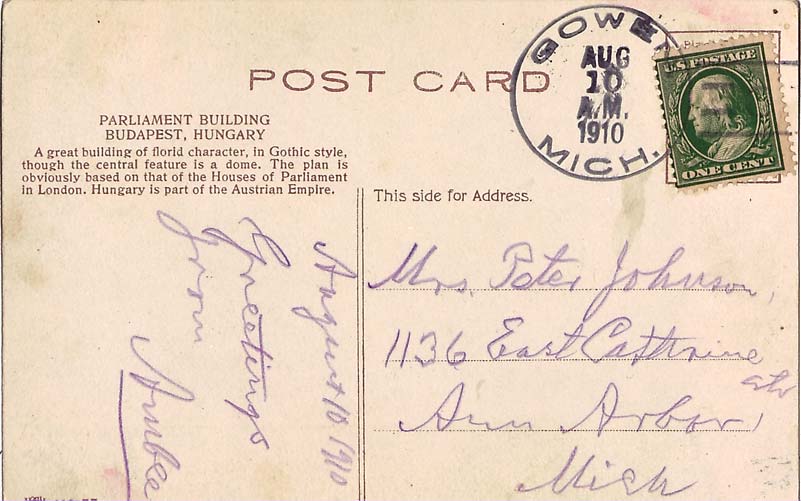 POST CARD
GOWEN
AUG
10
A.M.
1910
MICH.
U.S. POSTAGE
ONE CENT
PARLIAMENT BUILDING
BUDAPEST, HUNGARY
A great building of florid character, in Gothic style,
though the central feature is a dome. The plan is
obviously based on that of the Houses of Parliament
in London. Hungary is part of the Austrian Empire.
This side for Address.
August 10 1910
Greetings
from
Mrs. Peter Johnson,
1136 East Cathrine
str
Ann Arbor,
Mich